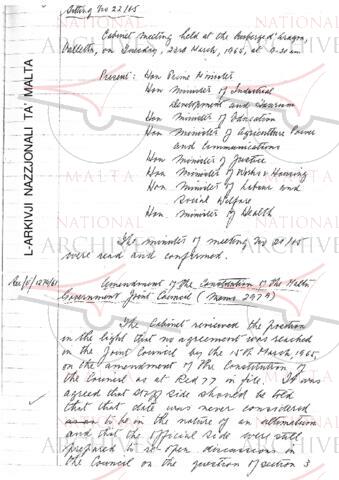 Sitting No 22/65
Cabinet meeting held at the Auberge d'Aragon,
Valletta, on Tuesday, 23rd March, 1965, at 9.30 am
Present: Hon Prime Minister
Hon Minister of Industrial
Development and Tourism
Hon Minister of Education
Hon Minister of Agriculture Power
and Communications
Hon Minister of Justice
Hon Minister of Works & Housing
Hon Minister of Labour and
Social Welfare
Hon Minister of Health
The minutes of meeting No 21/65
were read and confirmed.
Amendment of the Constitution of the Malta
Government Joint Council (Memo 2979)
The Cabinet reviewed the position
in the light that no agreement was reached
in the Joint Council by the 15th March, 1965,
on the amendment of the Constitution of
the Council as at Red 77 in file. It was
agreed that Staff Side should be told
that that date was never considered
to be in the nature of an ultimatum
and that the Official Side were still
prepared to re-open discussions in
the Council on the question of section 3
L-ARKIVJI NAZZJONALI TA' MALTA
NATIONAL
ARCHIVES
MALTA